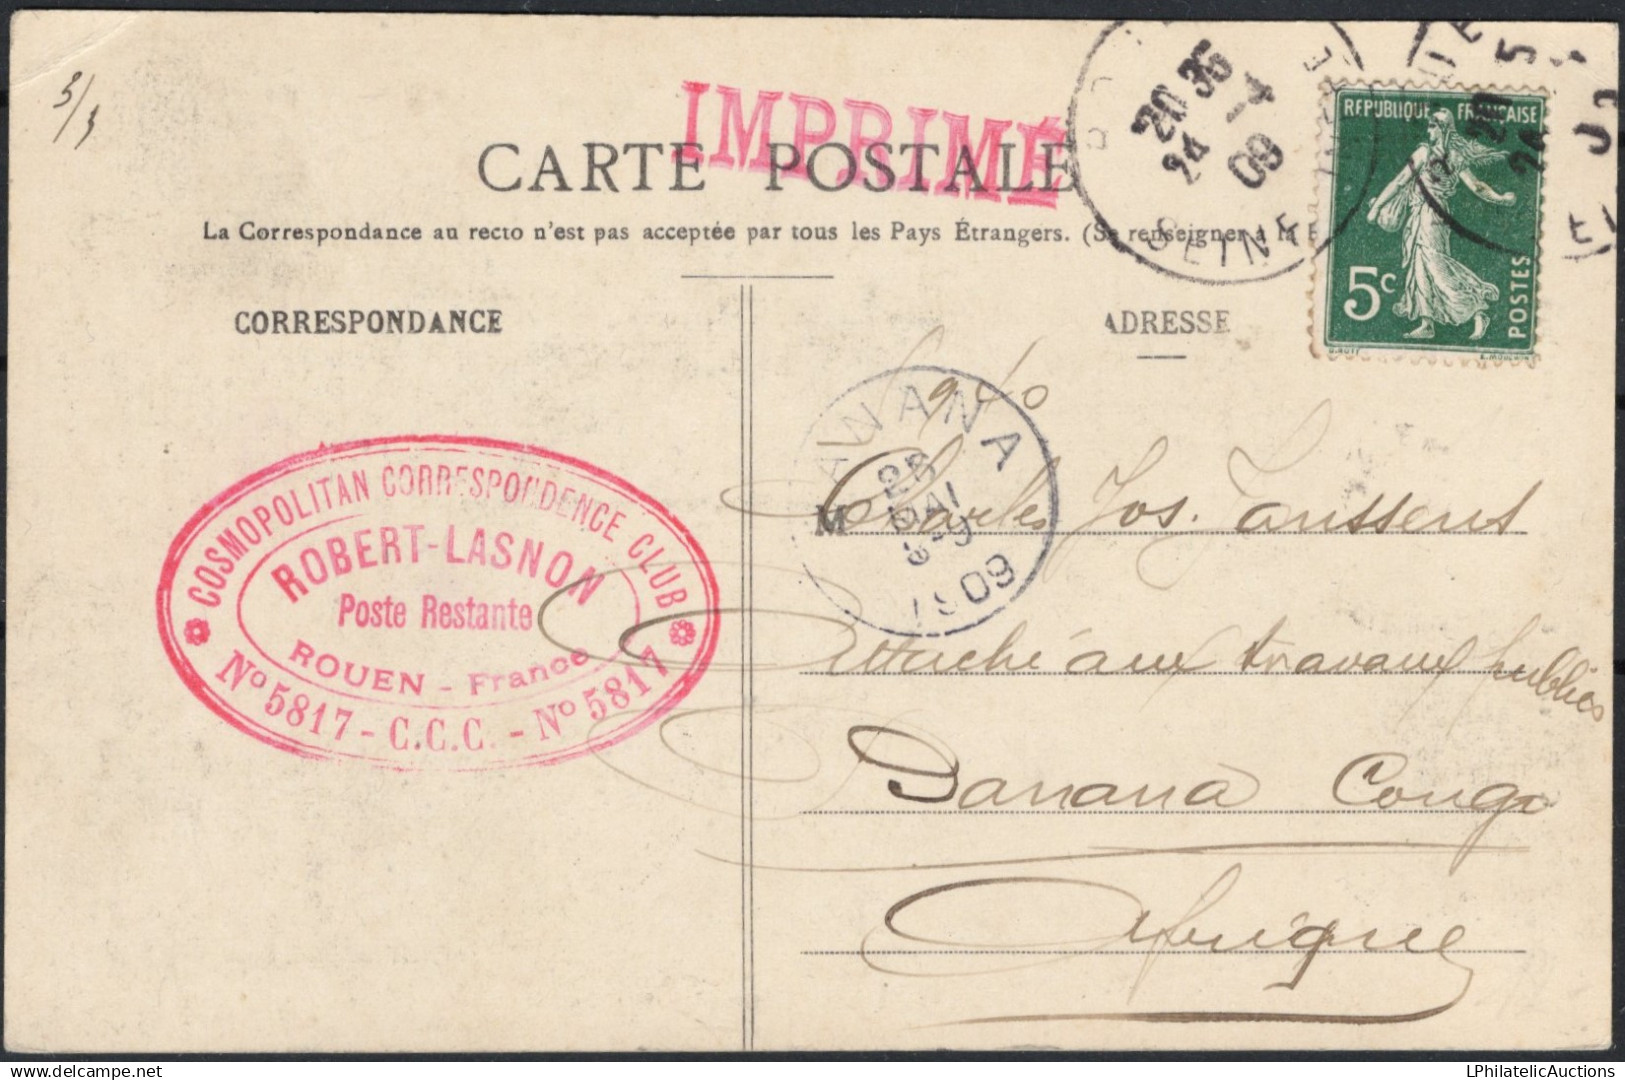 5/3
IMPRIMÉ
CARTE POSTALE
La Correspondance au recto n'est pas acceptée par tous les Pays Étrangers. (Se renseigner à la
CORRESPONDANCE
ADRESSE
20 35
24 -4
09
SEINE
REPUBLIQUE FRANÇAISE
5c
POSTES
COSMOPOLITAN CORRESPONDENCE CLUB
ROBERT-LASNON
Poste Restante
ROUEN - France
No 5817 - C.C.C. - No 5817
ANANA
25
MAI
1909
M
Charles Jos. Janssens
Attaché aux travaux publics
Banana Congo
Afrique
LPhilatelicAuctions